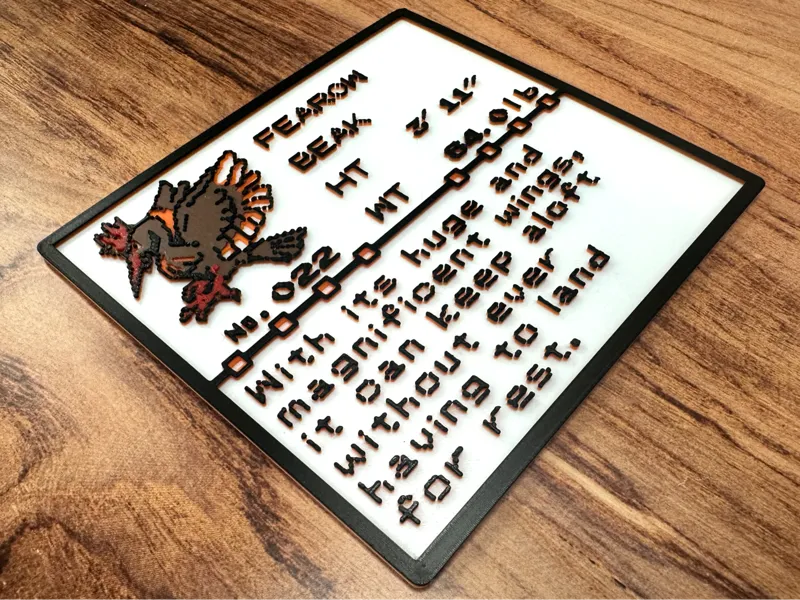 FEAROW
BEAK
HT 3' 11"
WT 84.0lb
No.022
With its huge and
magnificent wings,
it can keep aloft
without ever
having to land
for rest.